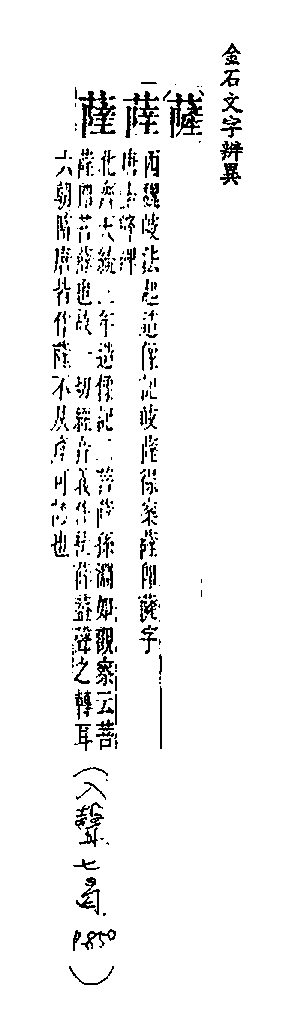 金石文字辨異
薩
薩 西魏歧法起造像記歧薩保案薩即薩字
薩 唐
北齊天統二年造像記二菩薩孫淵如觀察云菩
薩即菩薛也故一切經音義作扶薛葢聲之轉耳
六朝隋唐皆作薩不从產可證也
(入聲七曷 P.850)